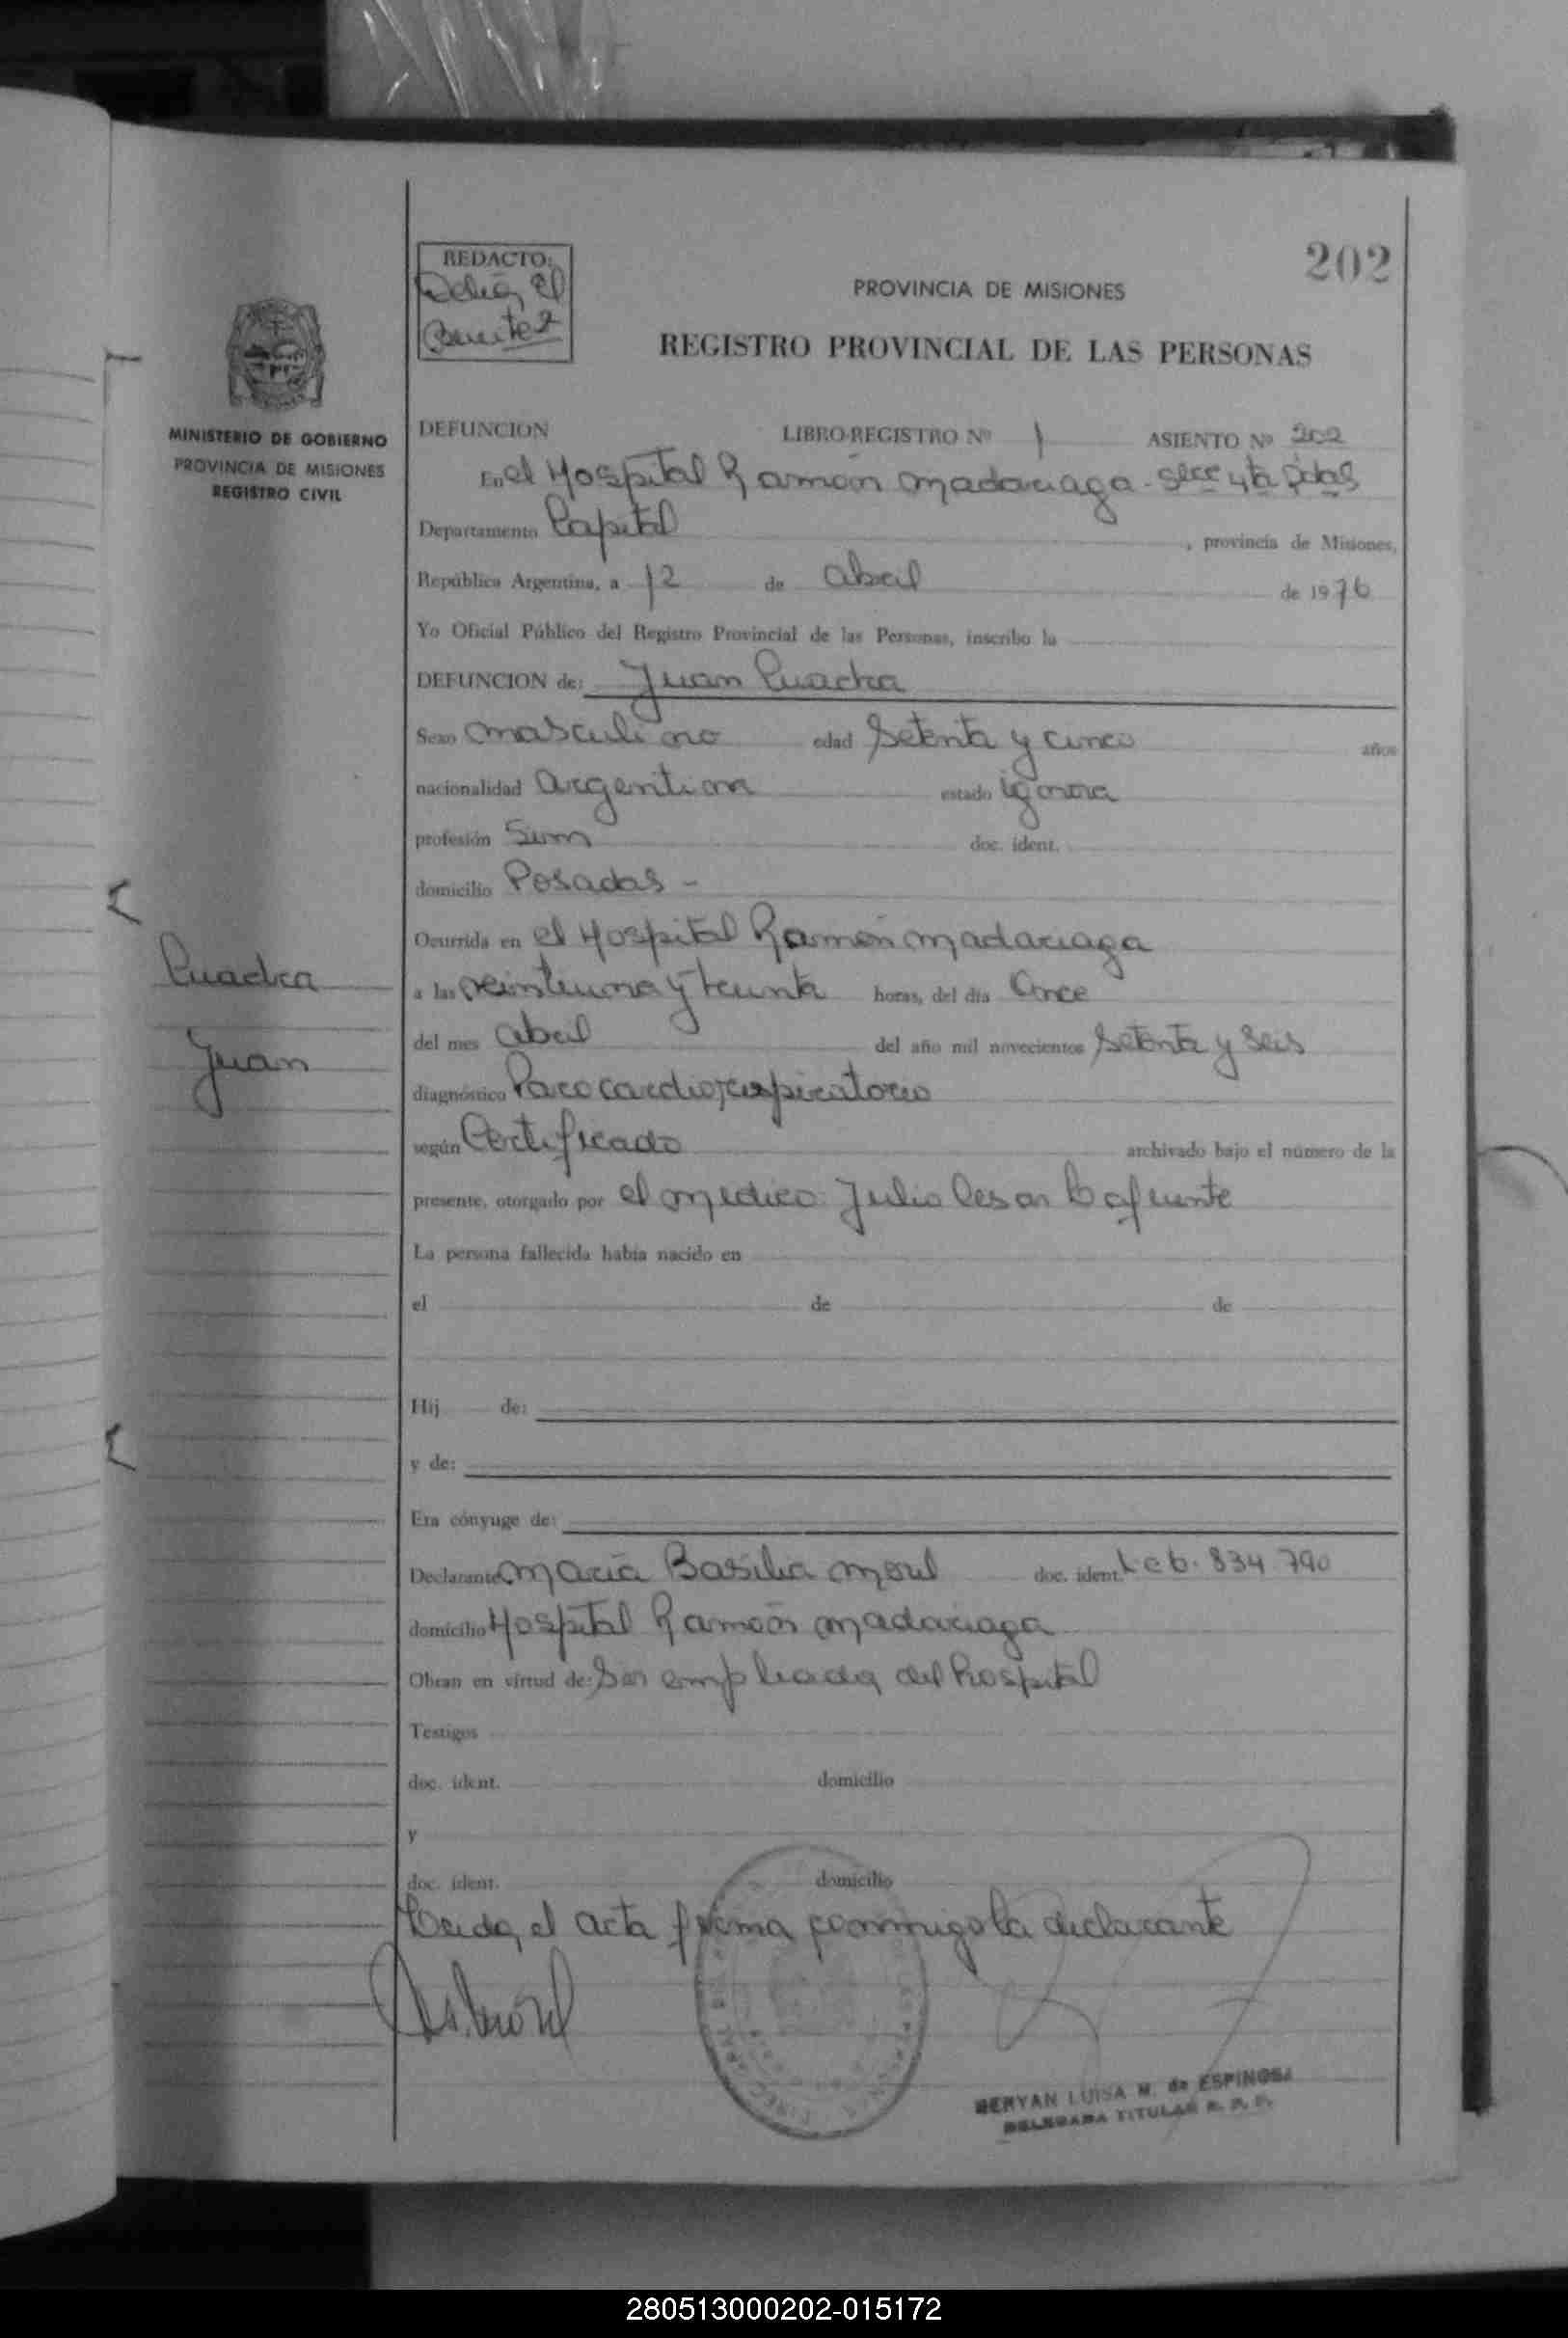 202
REDACTO:
Delia El
Benitez
PROVINCIA DE MISIONES
REGISTRO PROVINCIAL DE LAS PERSONAS
MINISTERIO DE GOBIERNO
PROVINCIA DE MISIONES
REGISTRO CIVIL
DEFUNCION LIBRO-REGISTRO Nº 1 ASIENTO Nº 202
En el Hospital Ramón Madariaga - Secc 4ta Pdas
Departamento Capital, provincia de Misiones,
República Argentina, a 12 de abril de 1976
Yo Oficial Público del Registro Provincial de las Personas, inscribo la
DEFUNCION de: Juan Cuadra
Sexo masculino edad Setenta y cinco años
nacionalidad argentina estado ignora
profesión doc. ident.
domicilio Posadas -
Ocurrida en el Hospital Ramón Madariaga
a las veintiuna y treinta horas, del día Once
del mes abril del año mil novecientos Setenta y Seis
diagnóstico Paro cardiorrespiratorio
según Certificado archivado bajo el número de la
presente, otorgado por el medico Julio Cesar Lafuente
La persona fallecida había nacido en
el de de
Hij de:
y de:
Era cónyuge de:
Declarante Maria Basilia Morel doc. ident. L c 6.834.790
domicilio Hospital Ramón Madariaga
Obran en virtud de: Ser empleada del hospital
Testigos
doc. ident. domicilio
y
doc. ident. domicilio
Leida, el acta firma conmigo la declarante
Cuadra
Juan
MERYAN LUISA M. de ESPINOSA
DELEGADA TITULAR R. P. P.
280513000202-015172